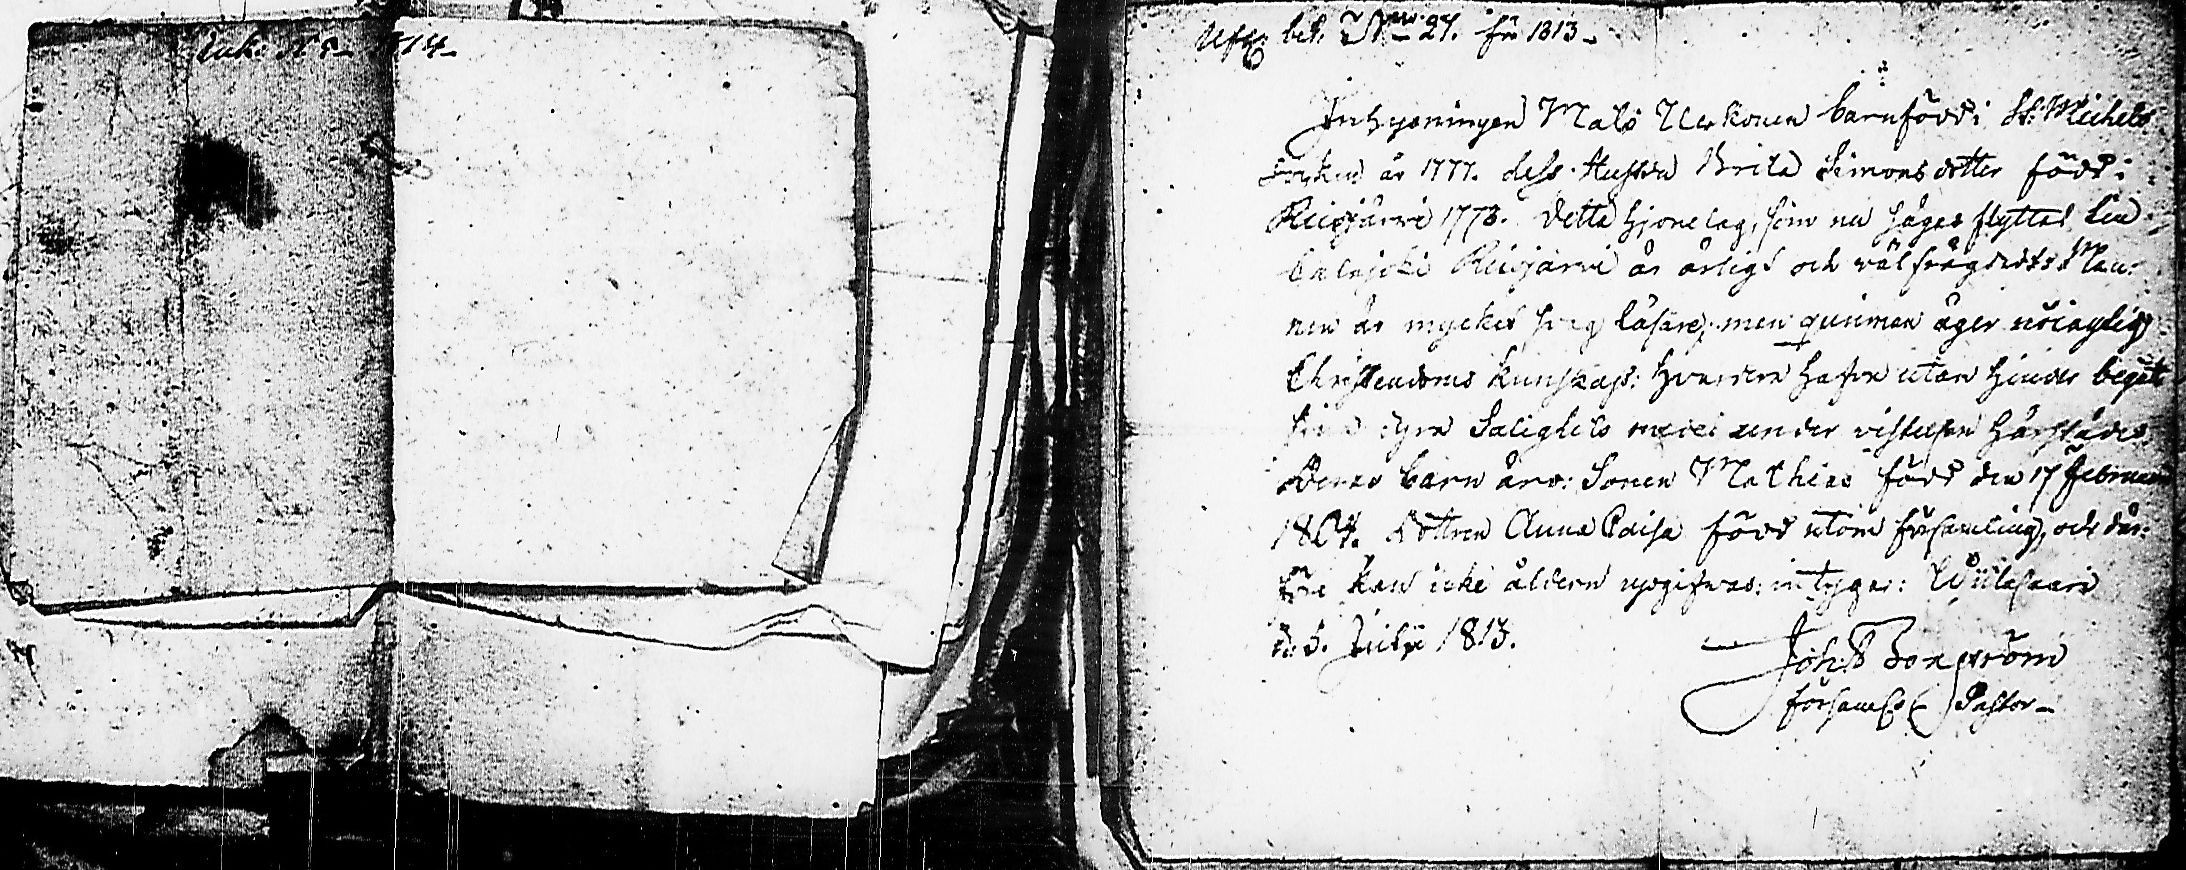 Ink: N 5 1814
Uftg bet. No 27. för 1813.
Inhysningen Mats Ukkonen barnfödd i St: Michels
Sockn år 1777. dess Hustru Brita Simonsdotter född i
Reisjärvi 1773. Detta hjonelag, som nu säges flytta till
Calajoki Reisjärvi är ärligt och välfrägdadt: Man-
nen är mycket svag läsare; men quinnan äger nöiagtig
Christendoms kunskap: hvardera hafva utan hinder begåt
sina dyra Salighets medel under vistelsen härstädes.
Deras barn äro: Sonen Mathias född den 17 Februarii
1804. Dottren Anna Caisa född utom församling, och där-
före kan icke åldern upgifvas; intygar: Wiitasaari
d: 5. Julii 1813.
Joh:
Pastor